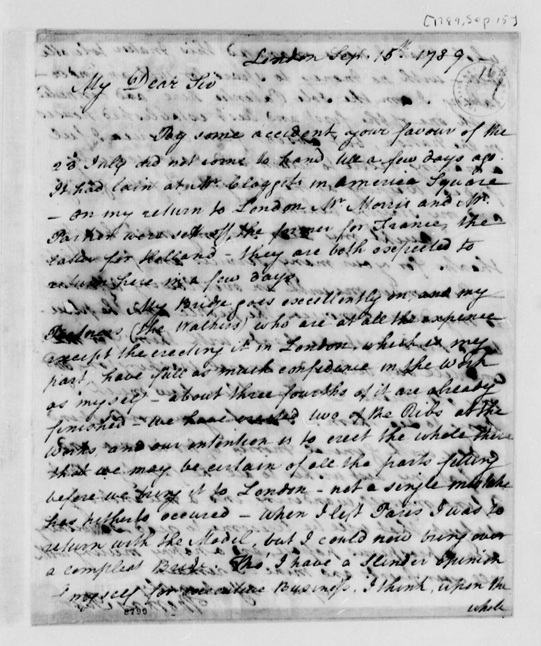 [1789, Sep 15]
London Sep. 15th 1789.
My Dear Sir
By some accident your favour of the
23 July did not come to hand till a few days ago.
It had lain at Mr. Claggets in America Square
- On my return to London Mr. Morris and Mr.
Parker were set off, the former for France, the
latter for Holland - they are both expected to
return here in a few days
My Bridge goes excellently on, and my
Partners (the Walkers) who are at all the expence
except the erecting it in London, which is my
part, have full as much confidence in the Work
as myself - about three fourths of it are already
finished - We have erected two of the Ribs at the
Works, and our intention is to erect the whole there
that we may be certain of all the parts fitting
before we bring it to London - not a single mistake
has hitherto occured - When I left Paris I was to
return with the Model, but I could now bring over
a compleat Bridge. Tho' I have a slender opinion
of myself for executive Business, I think, upon the
whole
8790